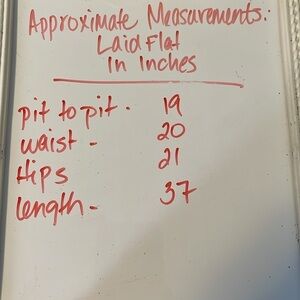 Approximate Measurements:
Laid Flat
In Inches
pit to pit - 19
waist - 20
Hips 21
length - 37